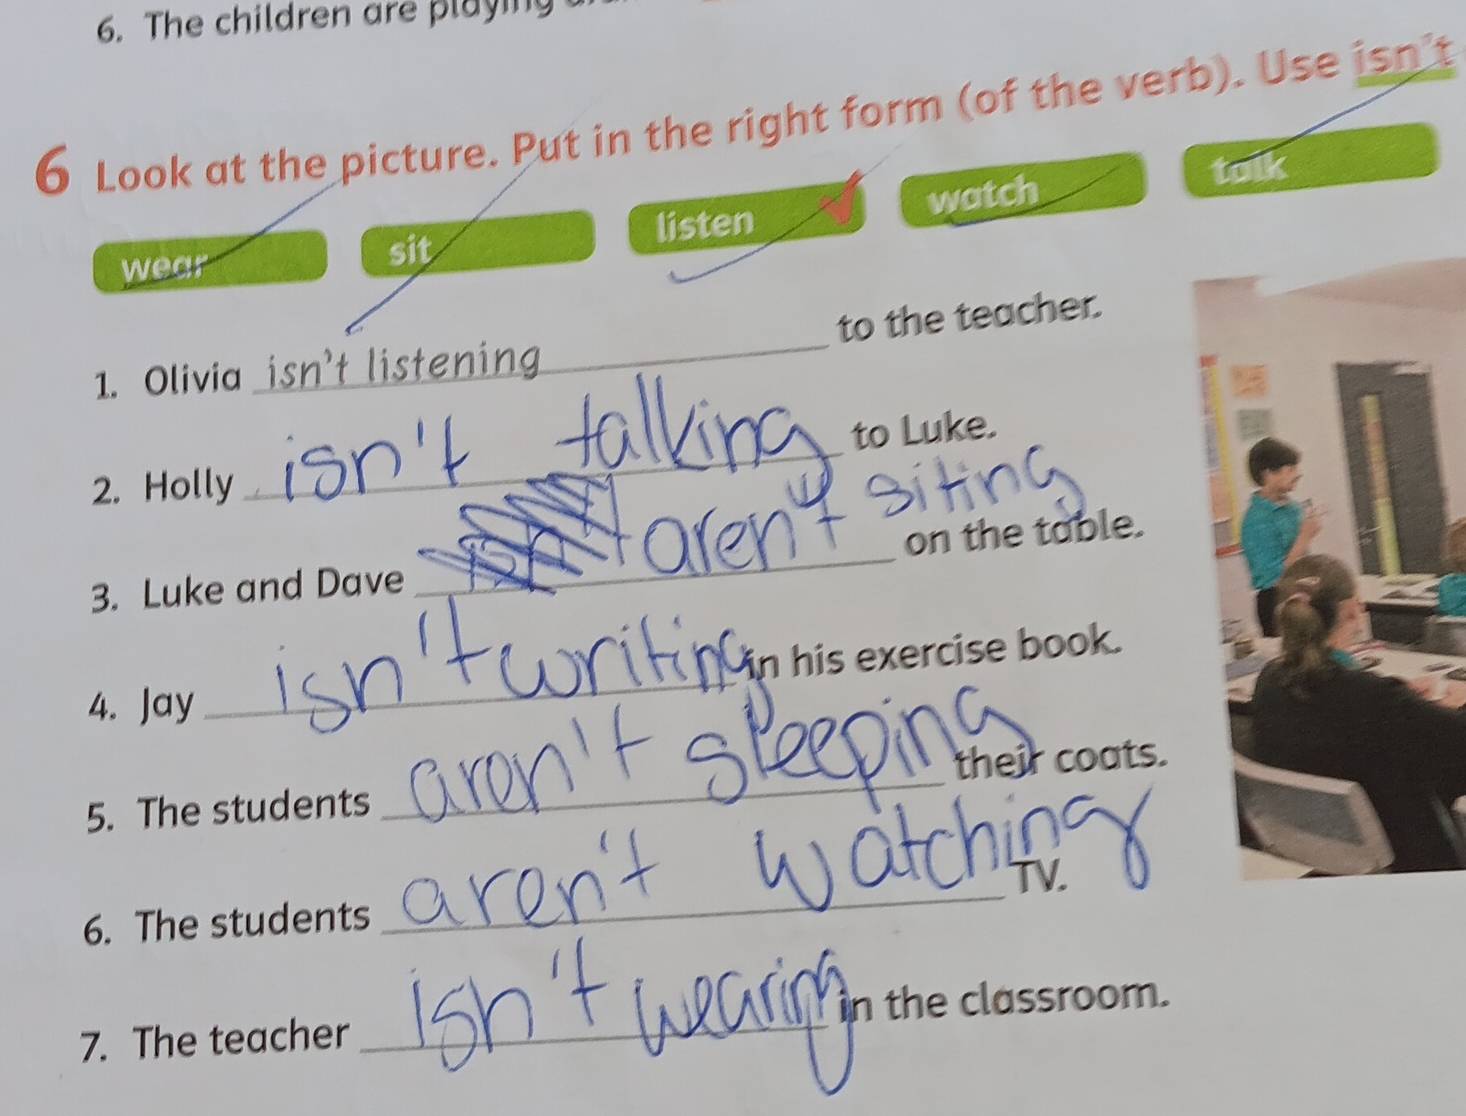 6. The children are playing
6 Look at the picture. Put in the right form (of the verb). Use isn't
wear sit listen watch talk
1. Olivia isn't listening to the teacher.
2. Holly isn't talking to Luke.
3. Luke and Dave aren't siting on the table.
4. Jay isn't writing in his exercise book.
5. The students aren't sleeping their coats.
6. The students aren't watching TV.
7. The teacher isn't wearing in the classroom.